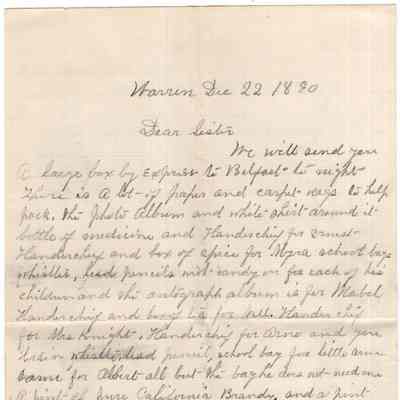 Warren Dec 22 1880
Dear Sister
We will send you
A large box by Express to Belfast to night
There is A lot of paper and carpet rags to help
pack. the photo Album and white shirt around it
bottle of medicine and Handercheif for Ernest
Handercheif and box of spice for Myra school bags
whistles, lead pencils with candy in for each of his
children and the autograph album is for Mabel
Handercheif and for Will. Handercheif
for Mrs Knight, Handercheif for Arno and you
lead pencil, school bag for little
same for Albert all but the bag he does not need one
A pint of pure California Brandy, and a pint